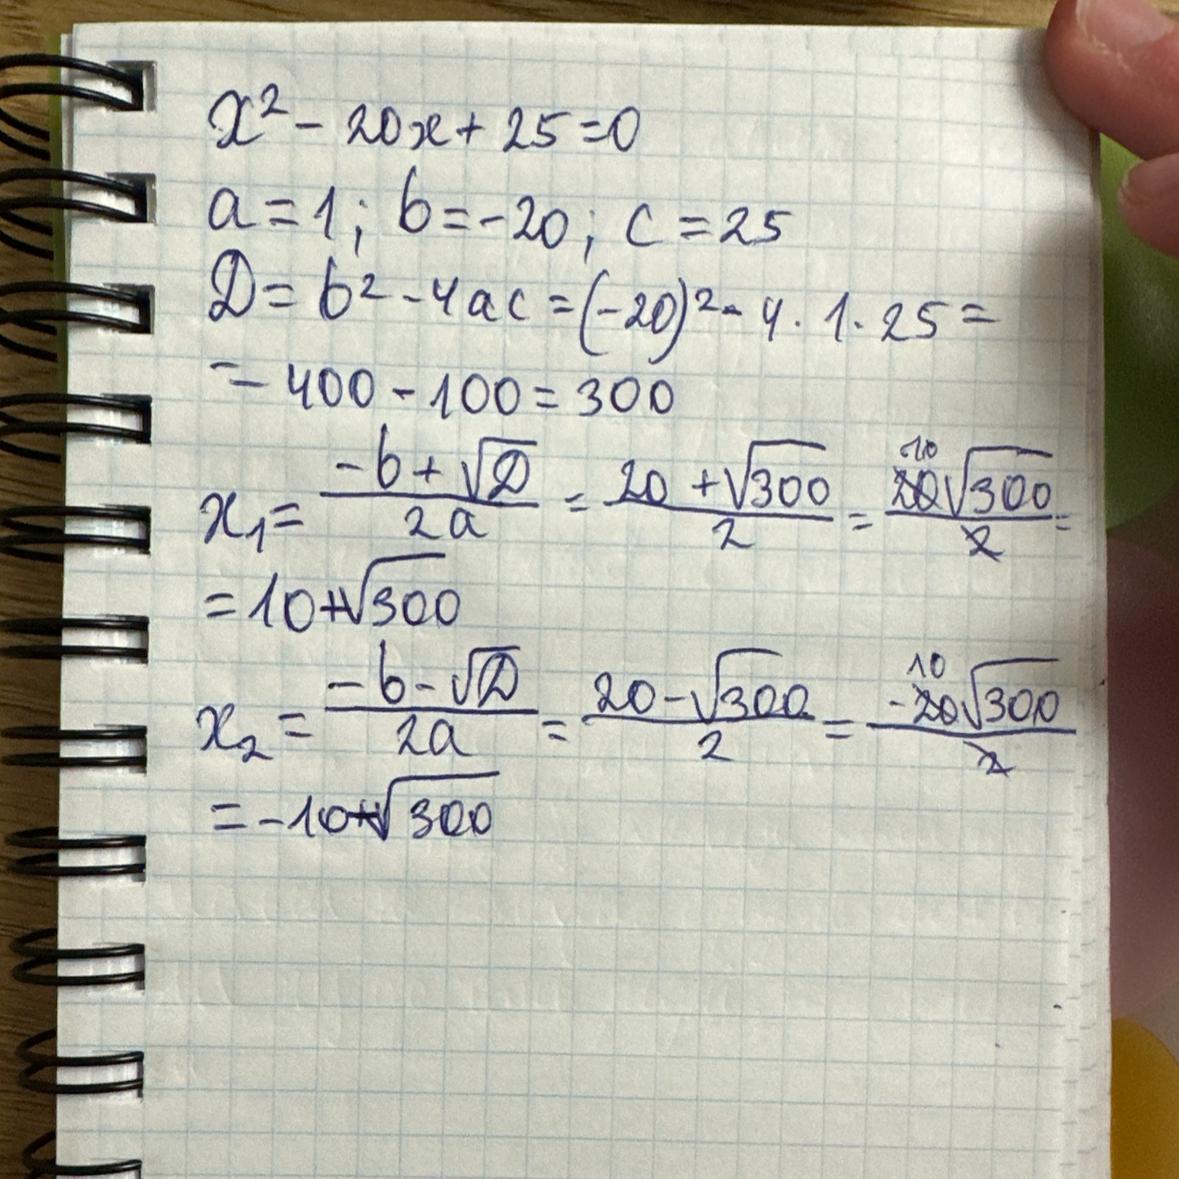 x² - 20x + 25 = 0
a = 1; b = -20; c = 25
D = b² - 4ac = (-20)² - 4 · 1 · 25 =
= 400 - 100 = 300
x₁ = (-b + √D)/(2a) = (20 + √300)/2 = (20√300)/2 = 10
= 10 + √300
x₂ = (-b - √D)/(2a) = (20 - √300)/2 = (-20√300)/2 10
= -10 + √300